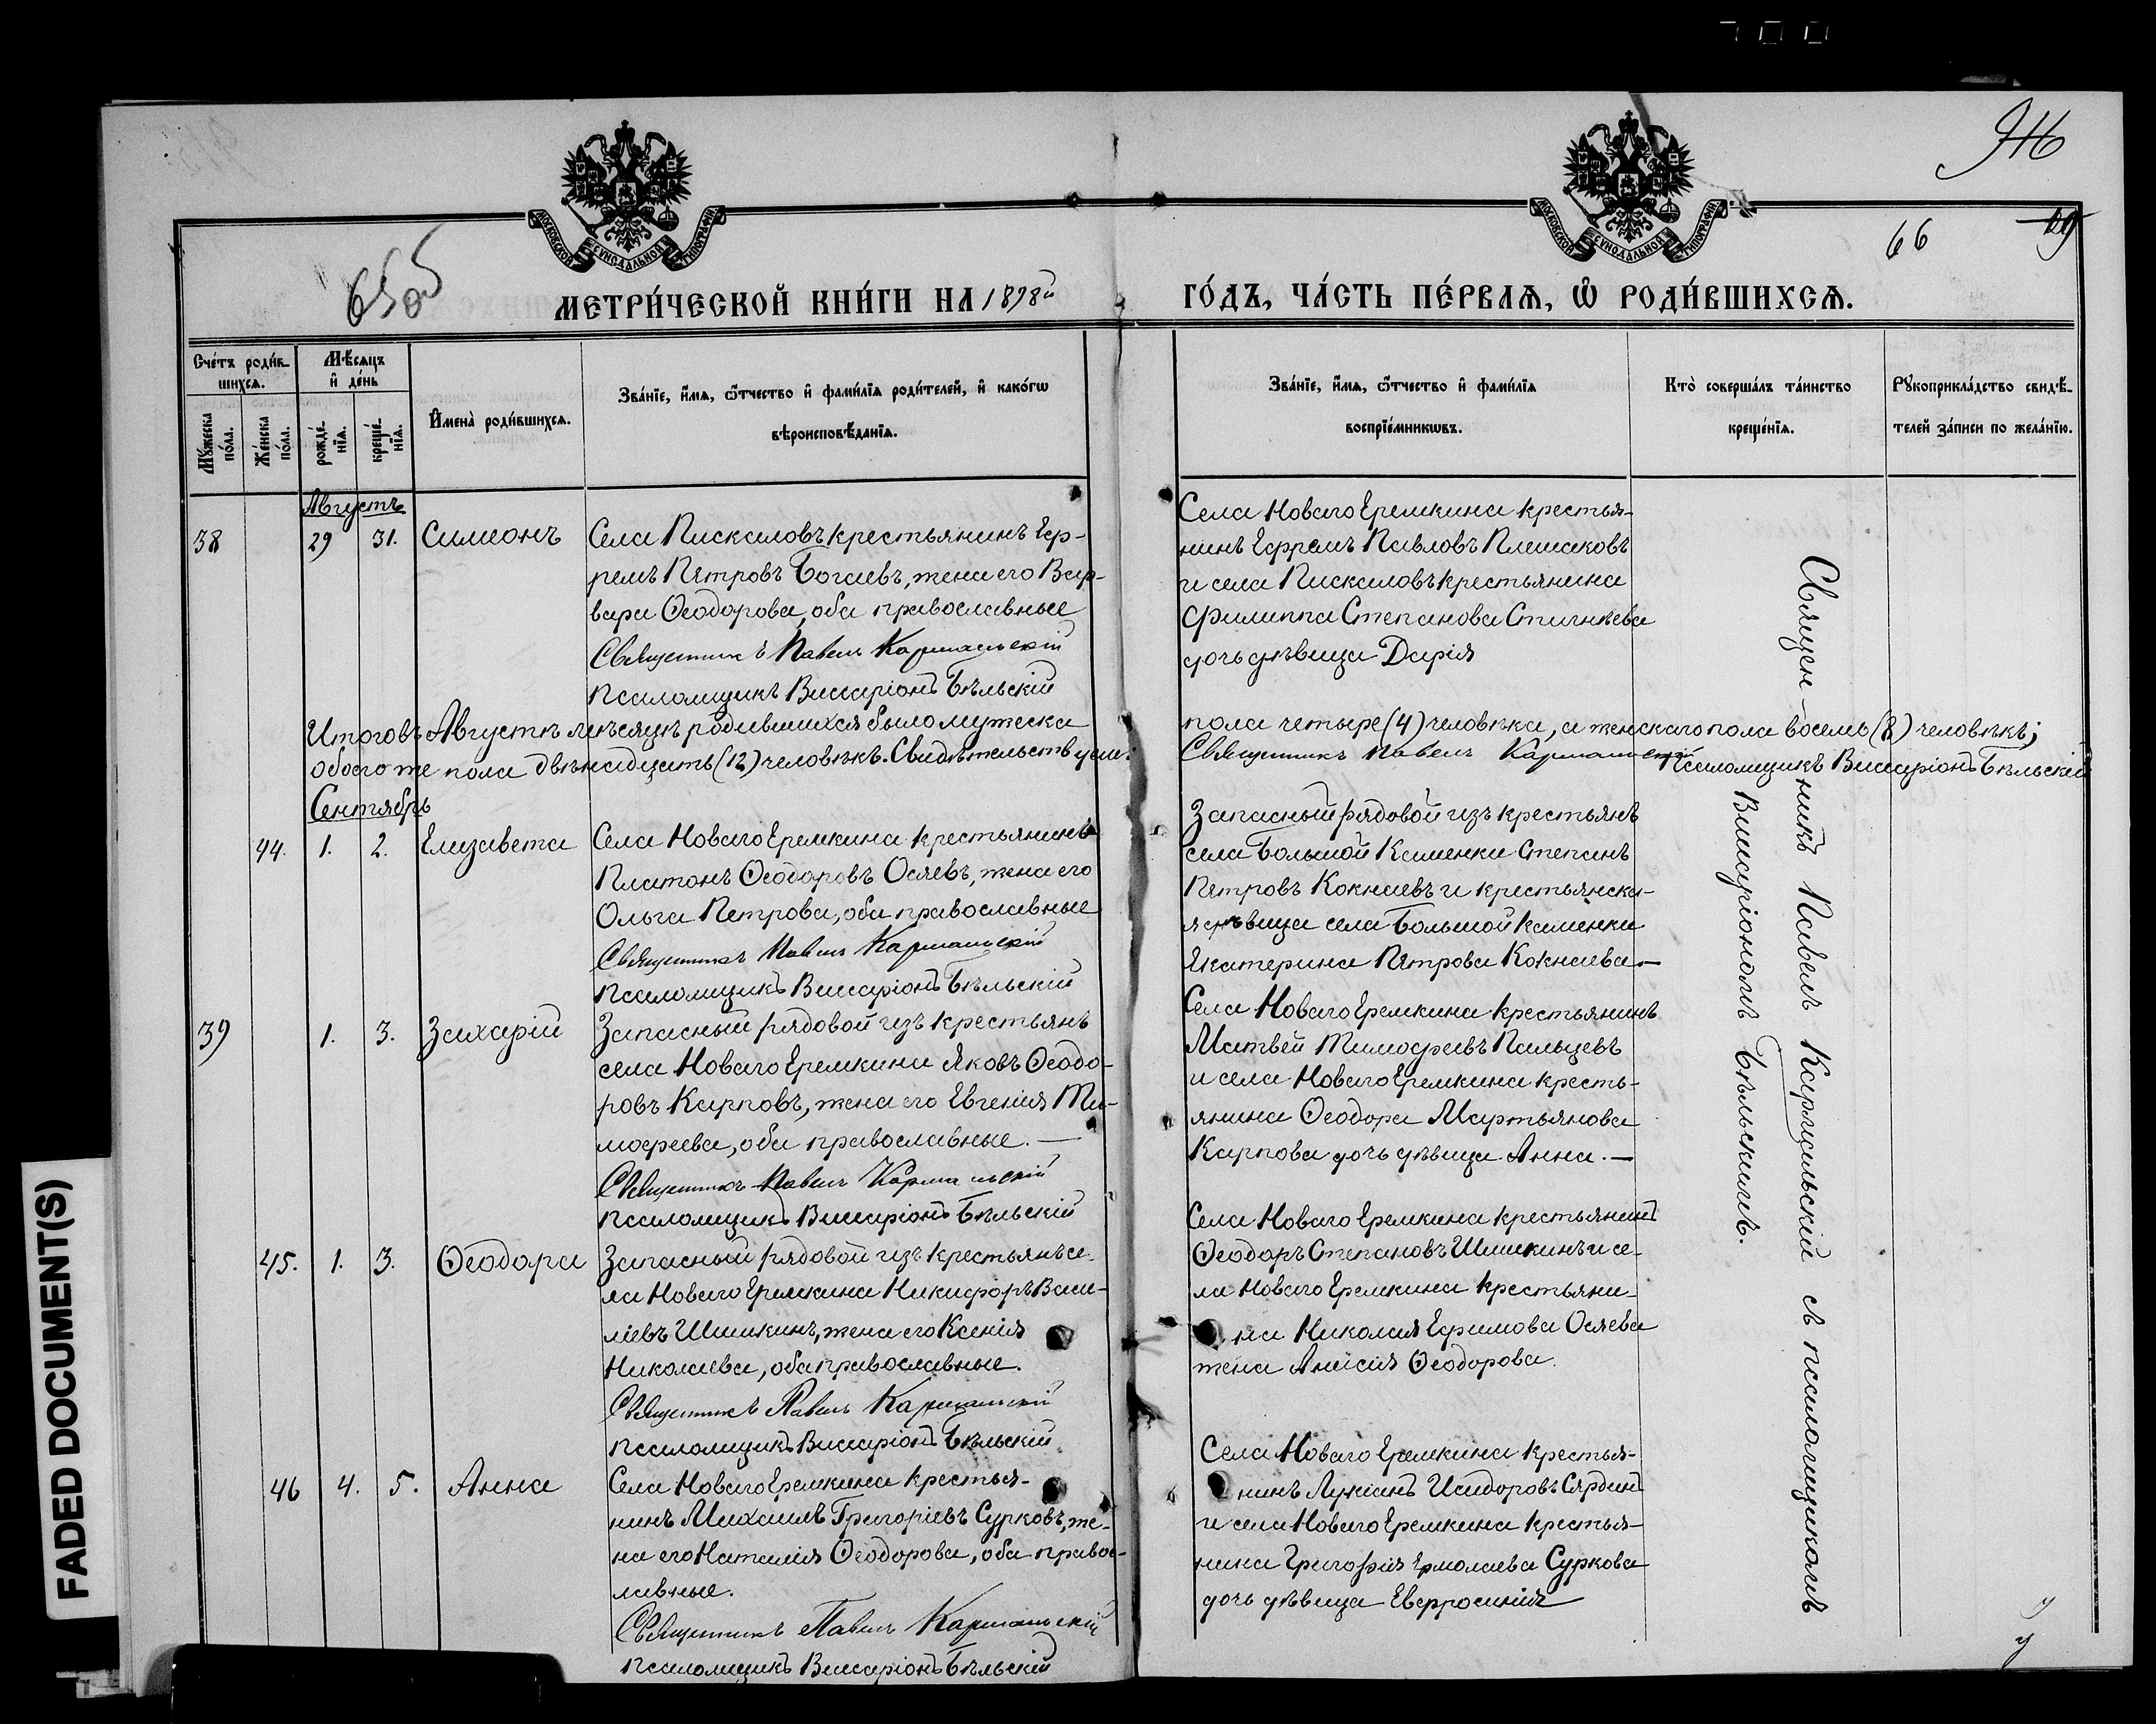 66
65об
МЕТРИ́ЧЕСКОЙ КНИ́ГИ НА 1898й ГО́ДЪ, ЧА́СТЬ ПЕ́РВАѦ, Ѽ РОДИ́ВШИХСѦ.
МОСКОВСКОЙ СѴНОДАЛЬНОЙ ТИПОГРАФІИ
МОСКОВСКОЙ СѴНОДАЛЬНОЙ ТИПОГРАФІИ
Счéтъ роди́в-
шихсѧ.
Мꙋ́жеска
по́ла.
Жéнска
по́ла.
Мѣ́сѧцъ
и҆ дéнь
рождé-
нїѧ.
крещé-
нїѧ.
И҆мена̀ роди́вшихсѧ.
Зва́нїе, и҆́мѧ, ѻ҆́тчество и҆ фами́лїѧ роди́телей, и҆ како́гѡ
вѣроисповѣ́данїѧ.
Зва́нїе, и҆́мѧ, ѻ҆́тчество и҆ фами́лїѧ
воспрїе́мникѡвъ.
Кто̀ соверша́лъ та́инство
крещéнїѧ.
Рꙋкоприкла́дство свидѣ́-
телей за́писи по жела́нїю.
Августъ
38 29 31. Симеонъ
Села Пискаловъ крестьянинъ Еф-
ремъ Петровъ Богаевъ, жена его Вар-
вара Ѳеодорова, оба православные
Священникъ Павелъ Кармальскій
Псаломщикъ Виссаріонъ Бѣльскій
Села Новаго Еремкина крестья-
нинъ Ефремъ Павловъ Плешаковъ
и села Пискаловъ крестьянина
Филиппа Степанова
дочь дѣвица Дарія
Итого въ Августѣ мѣсяцѣ родившихся было мужеска пола четыре (4) человѣка, а женскаго пола восемь (8) человѣкъ;
обоего же пола двѣнадцать (12) человѣкъ. Свидѣтельствуемъ: Священникъ Павелъ Кармальскій Псаломщикъ Виссаріонъ Бѣльскій
Сентябрь
44. 1. 2. Елизавета
Села Новаго Еремкина крестьянинъ
Платонъ Ѳеодоровъ Осяевъ, жена его
Ольга Петрова, оба православные
Священникъ Павелъ Кармальскій
Псаломщикъ Виссаріонъ Бѣльскій
Запасный рядовой изъ крестьянъ
села Большой Каменки Степанъ
Петровъ Кокнаевъ и крестьянска-
я дѣвица села Большой Каменки
Екатерина Петрова Кокнаева.—
39 1. 3. Захарій
Запасный рядовой изъ крестьянъ
села Новаго Еремкина Яковъ Ѳеодо-
ровъ Карповъ, жена его Евгенія Ти-
мофеева, оба православные.—
Священникъ Павелъ Кармальскій
Псаломщикъ Виссаріонъ Бѣльскій
Села Новаго Еремкина крестьянинъ
Матвей Тимофеевъ Пальцевъ
и села Новаго Еремкина кресть-
янина Ѳеодора Мартьянова
Карпова дочь дѣвица Анна.—
45. 1. 3. Ѳеодора
Запасный рядовой изъ крестьянъ се-
ла Новаго Еремкина Никифоръ Васи-
ліевъ Шишкинъ, жена его Ксенія
Николаева, оба православные.
Священникъ Павелъ Кармальскій
Псаломщикъ Виссаріонъ Бѣльскій
Села Новаго Еремкина крестьянинъ
Ѳеодоръ Степановъ Шишкинъ и се-
ла Новаго Еремкина крестьяни-
на Николая Ефимова Осяева
жена Анисія Ѳеодорова.
46 4. 5. Анна
Села Новаго Еремкина крестья-
нинъ Михаилъ Григоріевъ Сурковъ, же-
на его Наталія Ѳеодорова, оба правос-
лавные.
Священникъ Павелъ Кармальскій
Псаломщикъ Виссаріонъ Бѣльскій
Села Новаго Еремкина крестья-
нинъ Лукіанъ Исидоровъ Сярдинъ
и села Новаго Еремкина крестья-
нина Григорія Ермолаева Суркова
дочь дѣвица Евфросинія
Священникъ Павелъ Кармальскій съ псаломщикомъ
Виссаріономъ Бѣльскимъ.
FADED DOCUMENT(S)